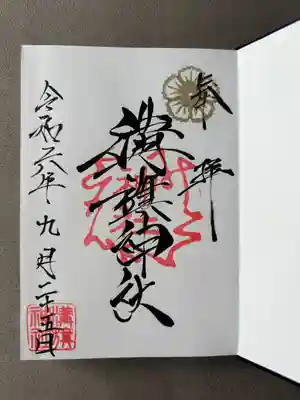 奉拝
溝旗神社
令和六年九月二十五日